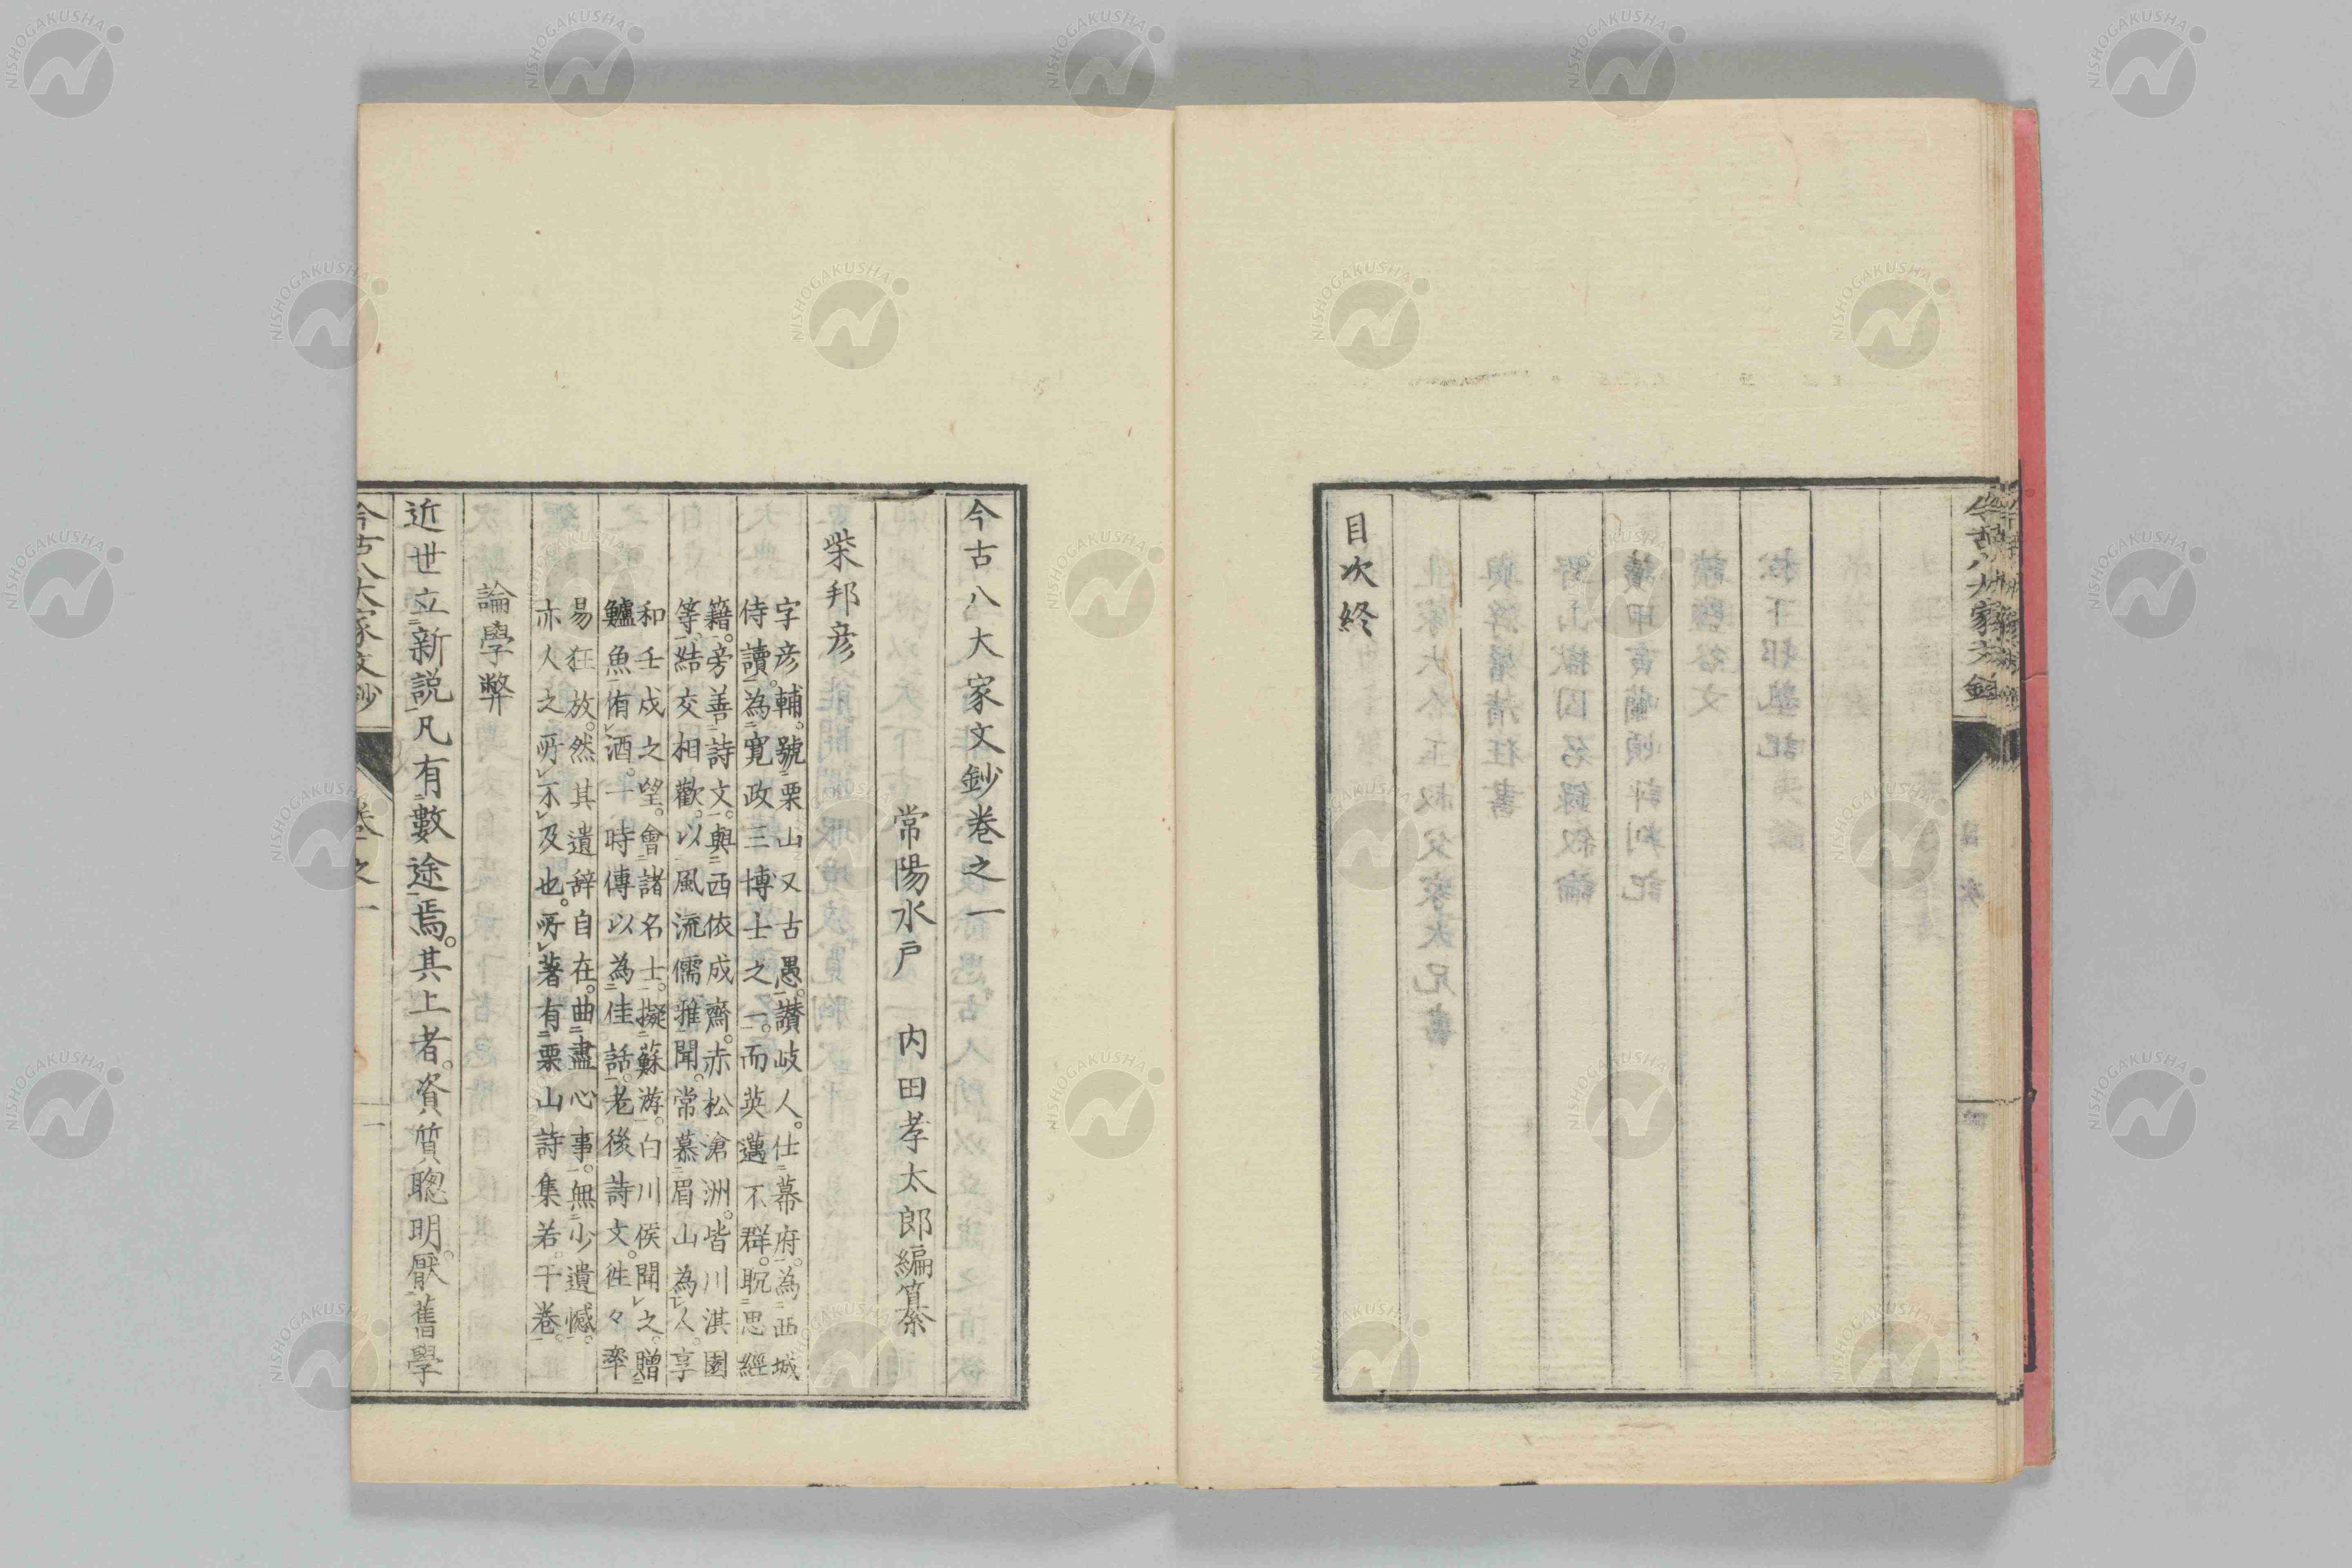 今古八大家文鈔
目次
目次終
今古八大家文鈔卷之一
常陽水戸 内田孝太郎編纂
柴邦彦
字彦輔。號栗山又古愚。讃岐人。仕幕府。為西城
侍讀。為寛政三博士之一。而英邁不群。耽思經
籍。旁善詩文。與西依成齋。赤松滄洲。皆川淇園
等。結交相歡。以風流儒雅聞。常慕眉山為人。享
和壬戌之望。會諸名士。擬蘇游。白川侯聞之。贈
鱸魚侑酒。一時傳以為佳話。老後詩文。徃々率
易狂放。然其遺辞自在。曲盡心事。無少遺憾。
亦人之所不及也。所著有栗山詩集若干卷。
論學弊
近世立新説凡有數途焉。其上者。資質聰明。厭舊學
今古八大家文鈔
卷之一
一
NISHOGAKUSHA